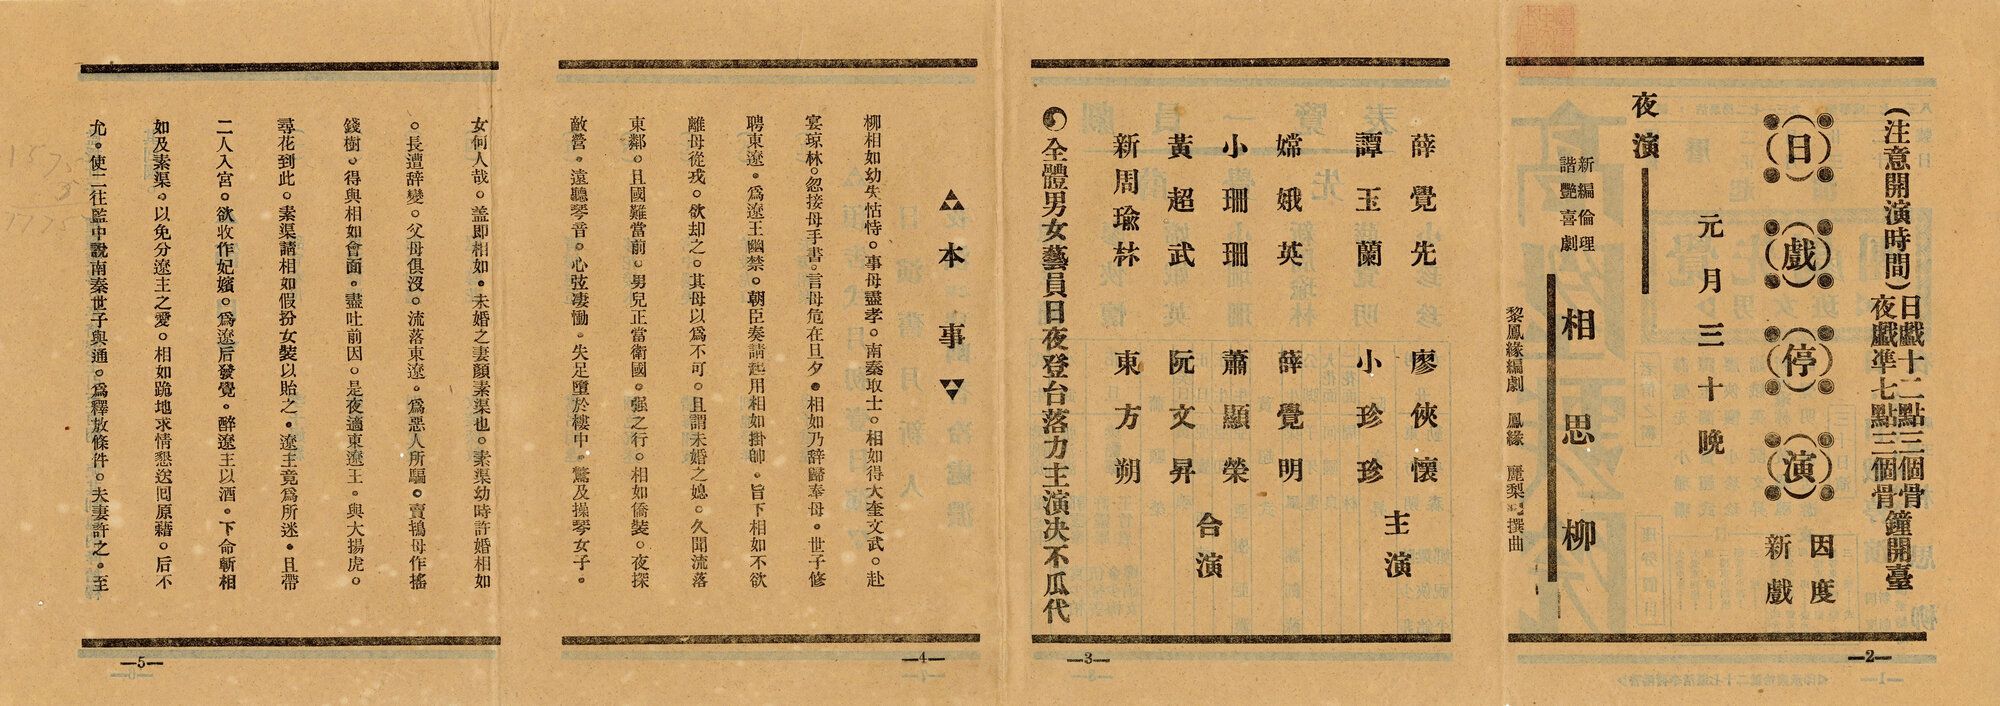 (注意開演時間)日戲十二點三個骨鐘開臺
夜戲準七點三個骨鐘開臺
(日)(戲)(停)(演)
因度
新戲
元月三十晚
夜演
新編倫理
諧艷喜劇
相思柳
黎鳳緣編劇 鳳緣 麗梨 撰曲
薛覺先 廖俠懷 主演
譚玉蘭 小珍珍
嫦娥英 薛覺明
小珊珊 蕭顯榮 合演
黃超武 阮文昇
新周瑜林 東方朔
全體男女藝員日夜登台落力主演决不瓜代
本事
柳相如幼失怙恃。事母盡孝。南秦取士。相如得大奎文武。赴
宴琼林。忽接母手書。言母危在旦夕。相如乃辞歸奉母。世子修
聘東遼。爲遼王幽禁。朝臣奏請起用相如掛帥。旨下相如不欲
離母從戎。欲却之。其母以爲不可。且謂未婚之媳。久聞流落
東鄰。且國難當前。男兒正當衛國。强之行。相如僑裝。夜探
敵營。遠聽琴音。心弦凄慟。失足墮於樓中。驚及操琴女子。
女何人哉。盖即相如。未婚之妻顏素渠也。素渠幼時許婚相如
。長遭辞變。父母俱沒。流落東遼。爲惡人所騙。賣鴇母作搖
錢樹。得與相如會面。盡吐前因。是夜適東遼王。與大揚虎。
尋花到此。素渠請相如假扮女裝以貽之。遼主竟爲所迷。且帶
二人入宮。欲收作妃嬪。爲遼后發覺。醉遼王以酒。下命斬相
如及素渠。以免分遼主之愛。相如跪地求情懇送囘原藉。后不
允。使二往監中說南秦世子與通。爲釋放條件。夫妻許之。至
—2—
—3—
—4—
—5—